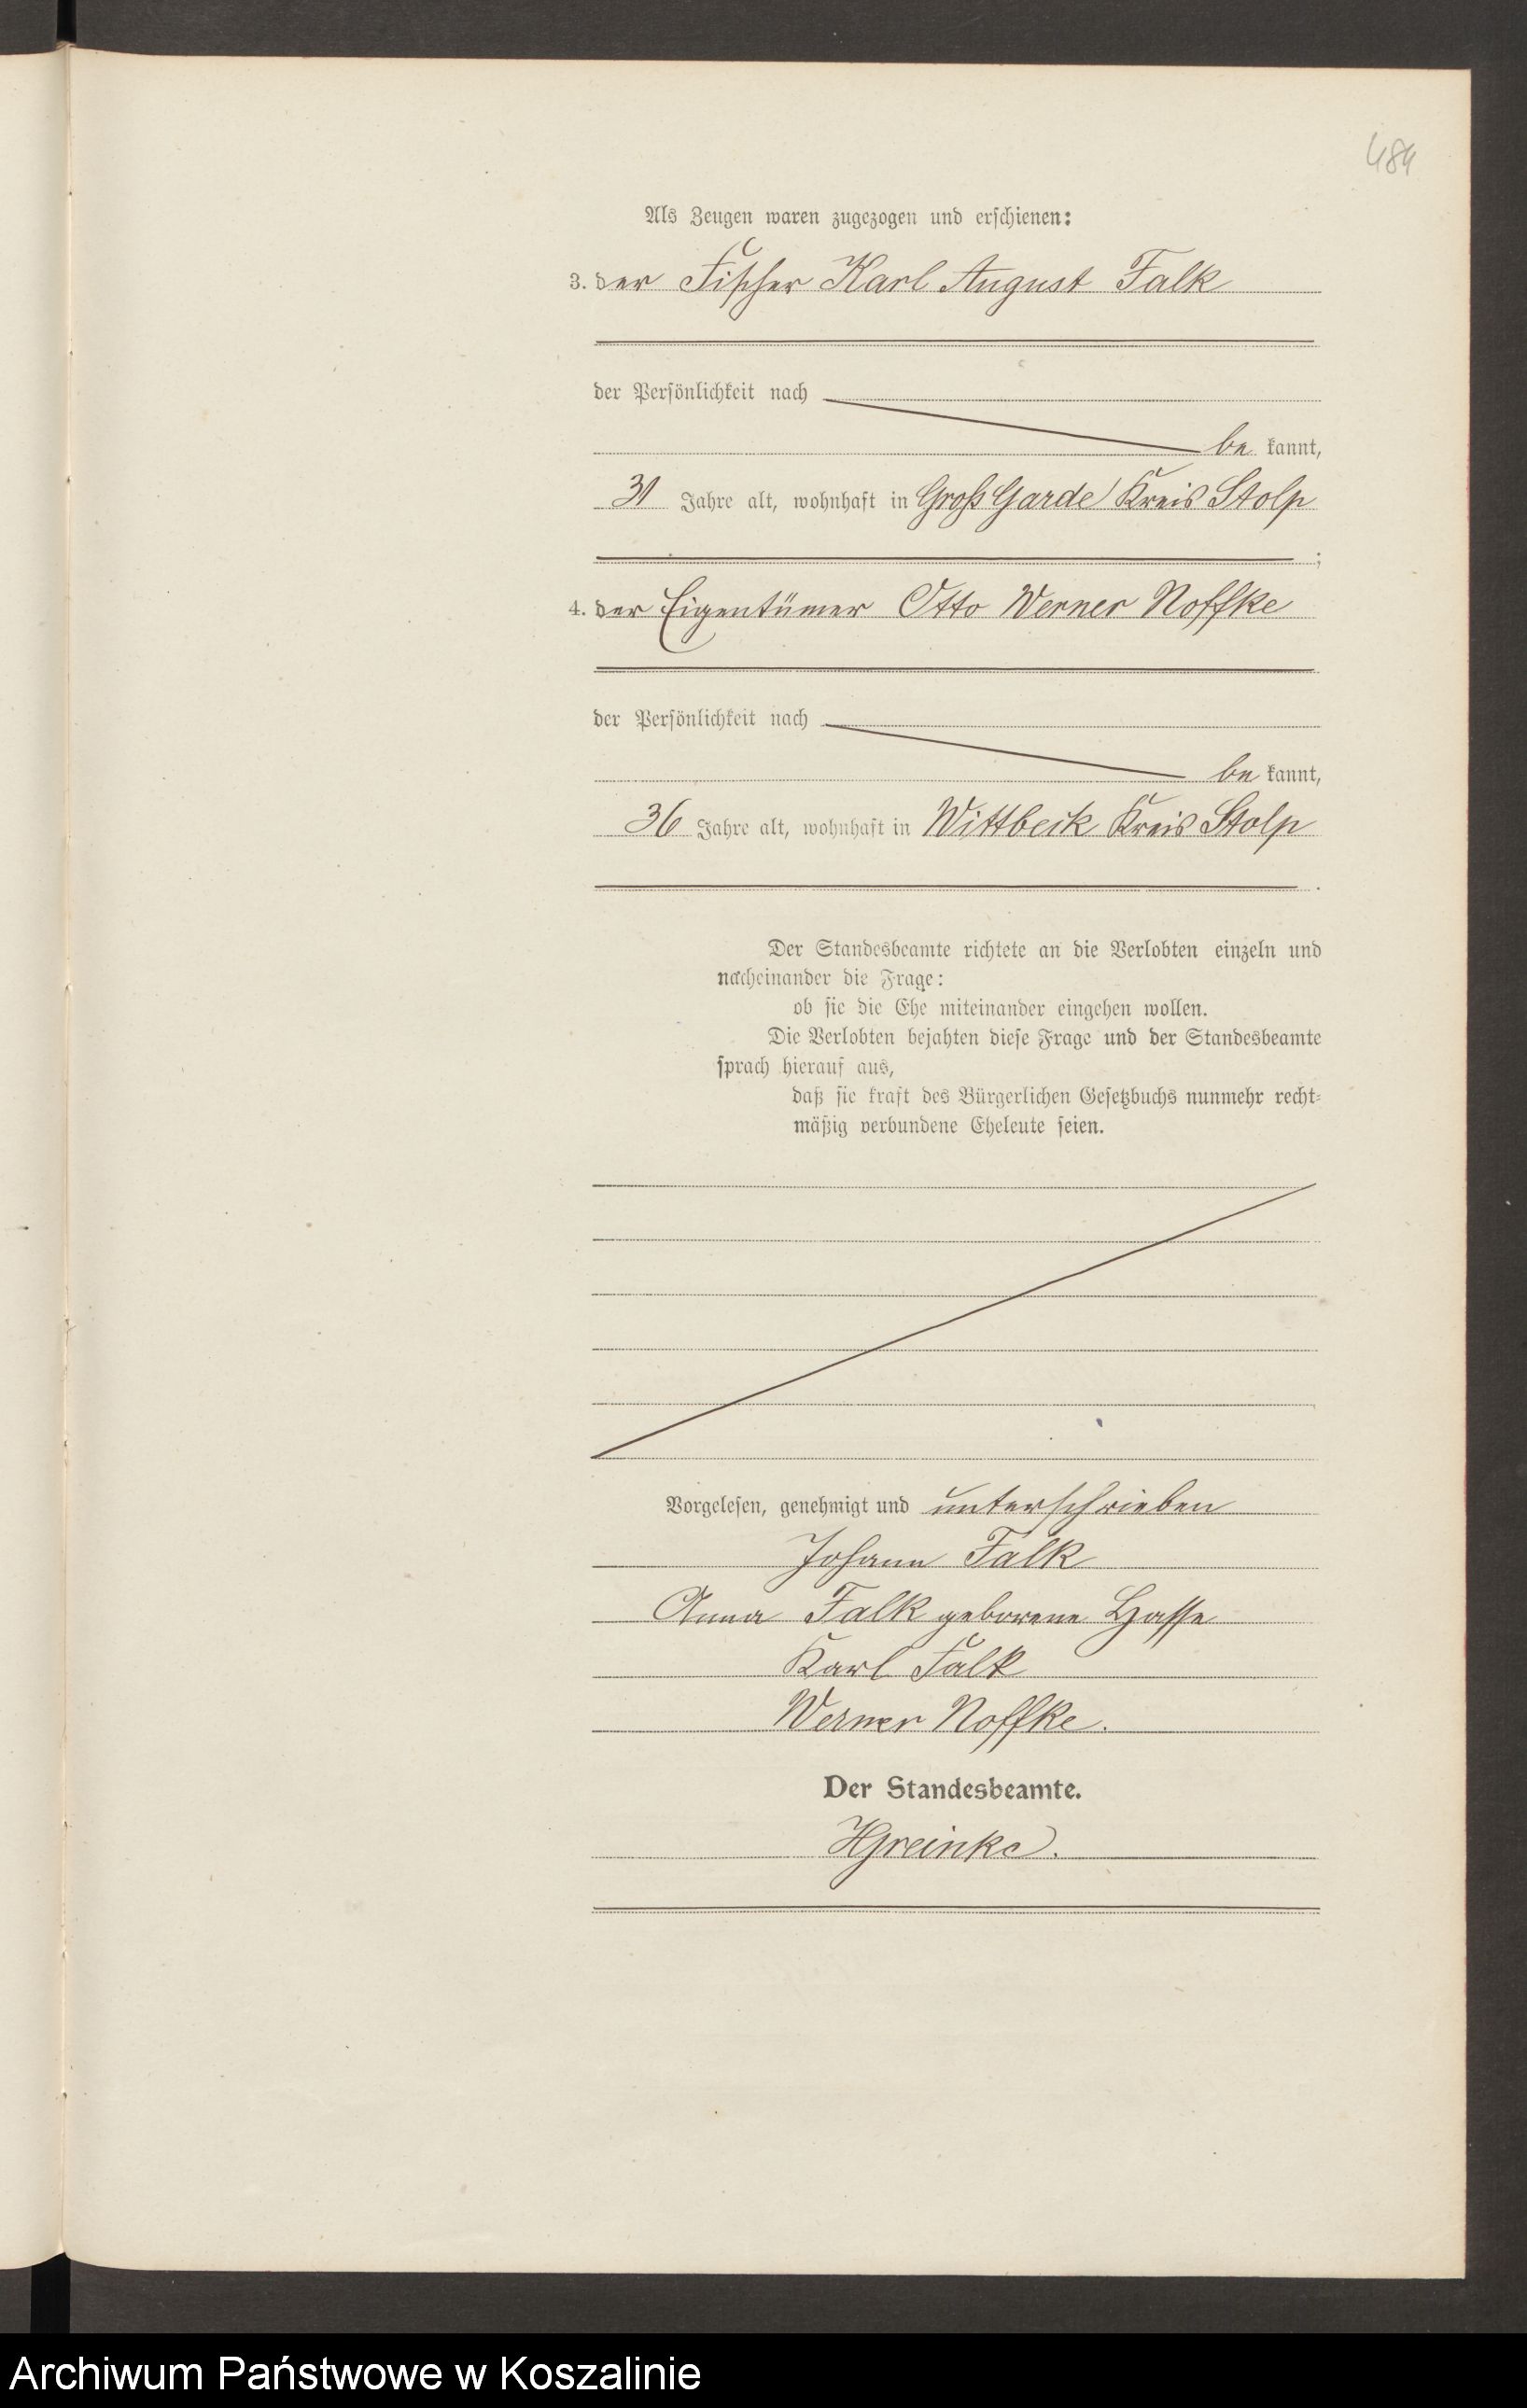 484
Als Zeugen waren zugezogen und erschienen:
3. der Fischer Karl August Falk
der Persönlichkeit nach
be kannt,
31 Jahre alt, wohnhaft in Groß Garde Kreis Stolp
;
4. der Eigentümer Otto Werner Noffke
der Persönlichkeit nach
be kannt,
36 Jahre alt, wohnhaft in Wittbeck Kreis Stolp
.
Der Standesbeamte richtete an die Verlobten einzeln und
nacheinander die Frage:
ob sie die Ehe miteinander eingehen wollen.
Die Verlobten bejahten diese Frage und der Standesbeamte
sprach hierauf aus,
daß sie kraft des Bürgerlichen Gesetzbuchs nunmehr recht-
mäßig verbundene Eheleute seien.
Vorgelesen, genehmigt und unterschrieben
Johann Falk
Anna Falk geborene Hasse
Karl Falk
Werner Noffke.
Der Standesbeamte.
HGreinke.
Archiwum Państwowe w Koszalinie